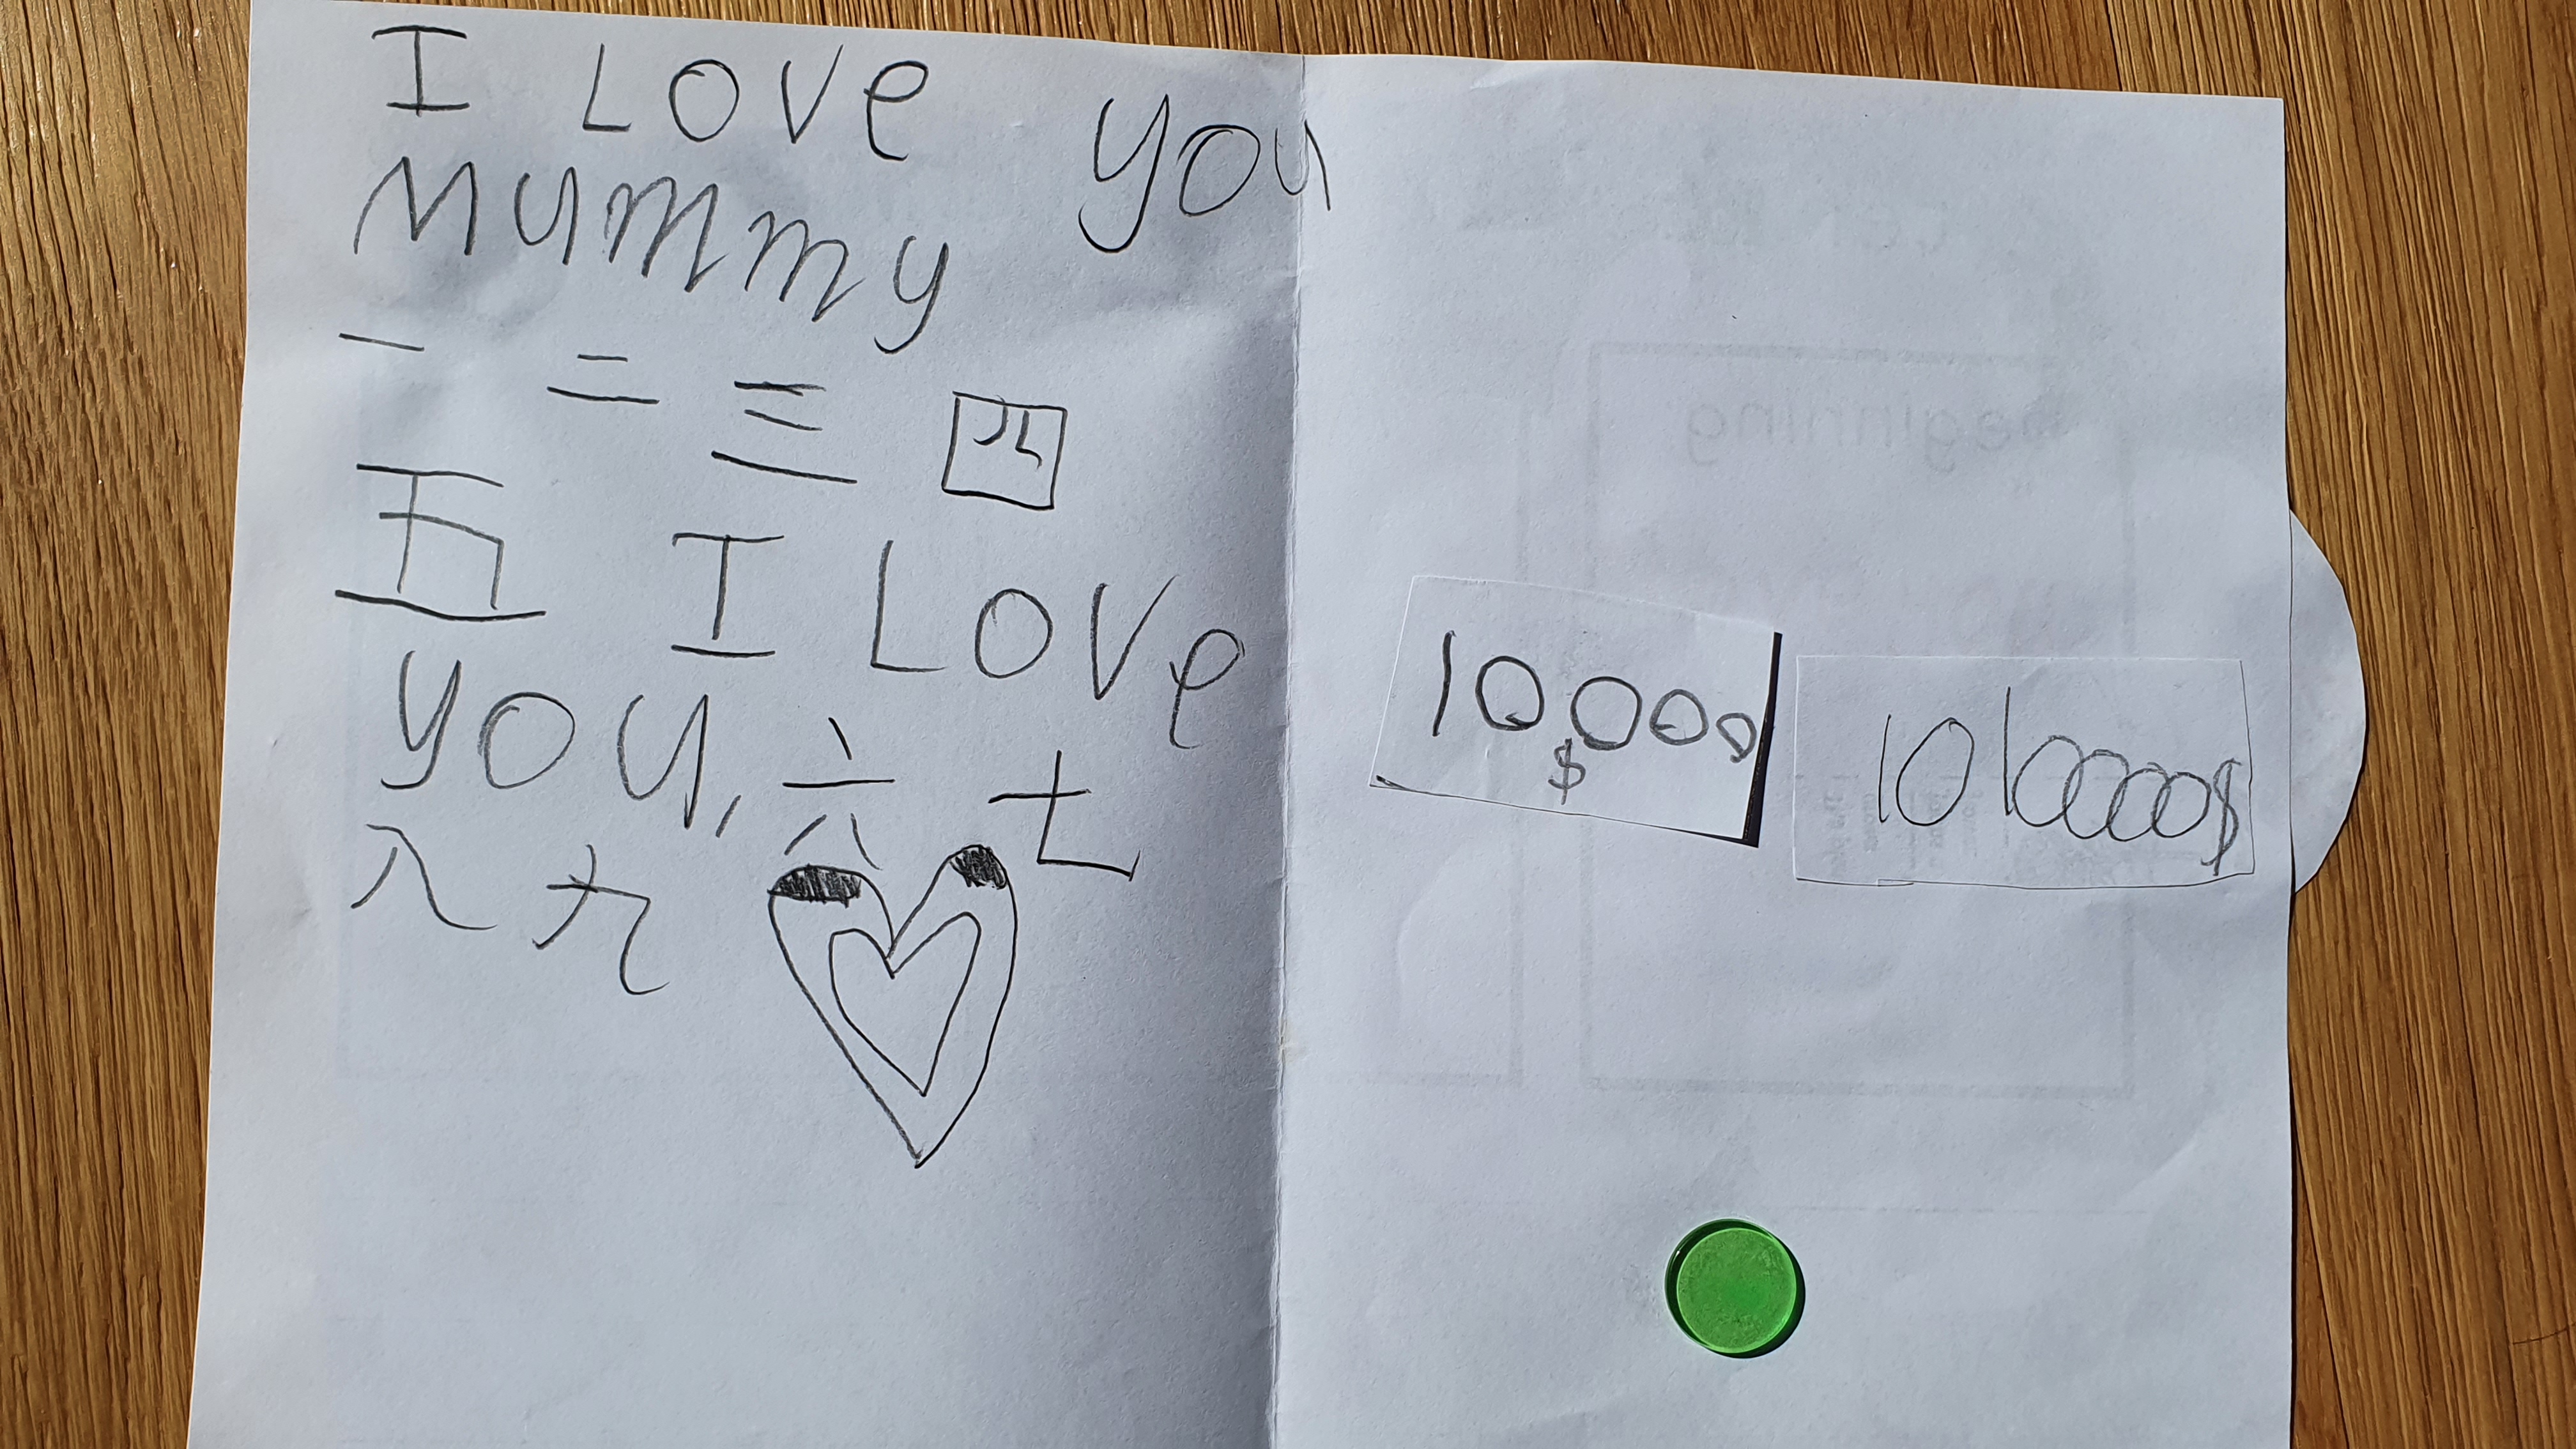 I Love you
Mummy
一 二 三 四
五 I Love
you, 六 七
八 九
10,000
$
10 10000$
beginning